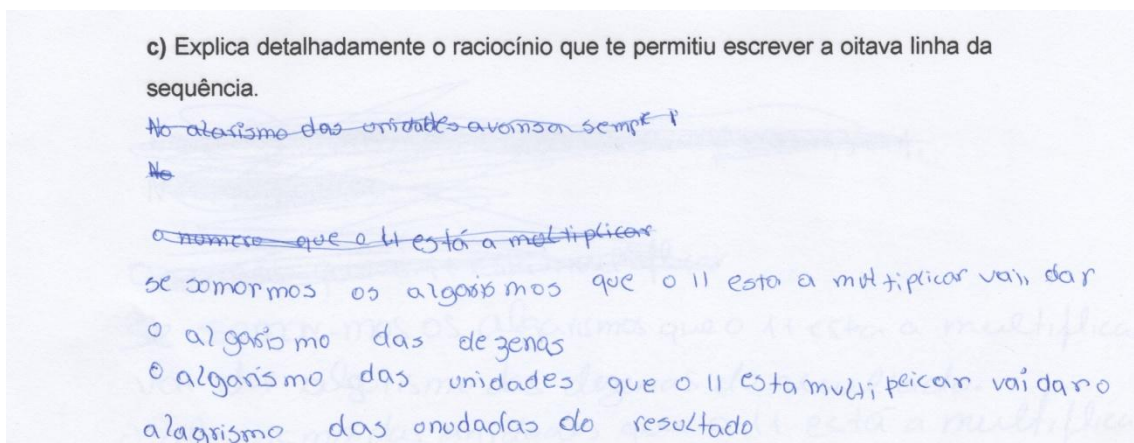 c) Explica detalhadamente o raciocínio que te permitiu escrever a oitava linha da
sequência.
No alarismo das unidades avansa sempre 1
No
o número que o 11 está a multiplicar
se somormos os algarismos que o 11 esta a multiplicar vai dar
o algarismo das dezenas
O algarismo das unidades que o 11 esta multiplicar vai dar o
alagrismo das unudadas do resultado